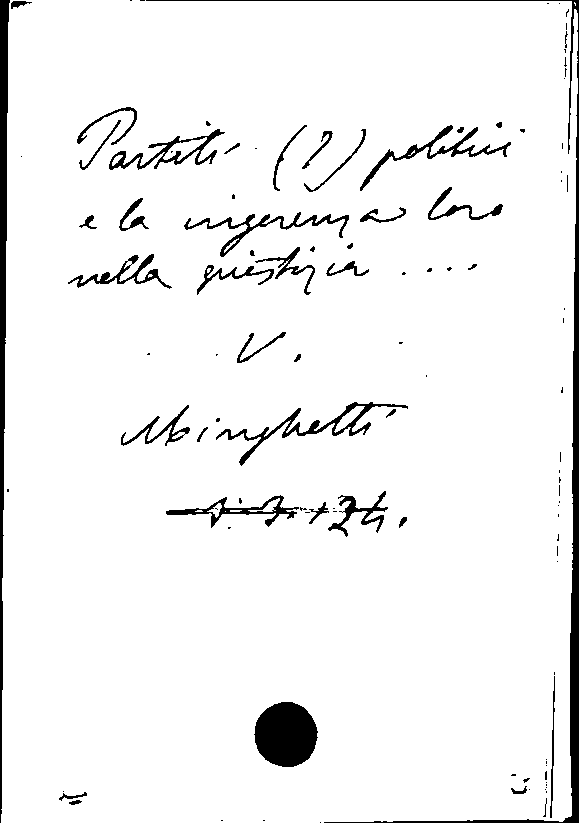 Partiti (?) politici
e la ingerenza loro
nella giustizia ....
V.
Minghetti